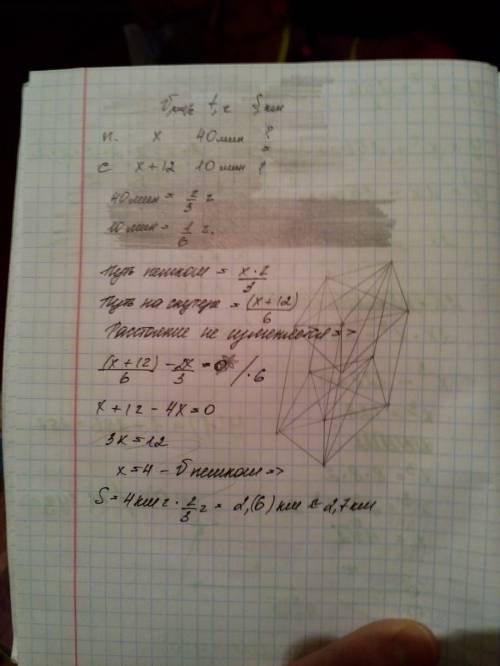 V, км/ч t, ч S, км
п. x 40 мин ?
=
с x+12 10 мин ?
40 мин = 2/3 ч
10 мин = 1/6 ч.
Путь пешком = x·2/3
Путь на скутере = (x+12)/6
Расстояние не изменяется =>
(x+12)/6 - 2x/3 = 0 /·6
x+12-4x=0
3x=12
x=4 - V пешком =>
S=4 км ч · 2/3 ч = 2,(6) км ≈ 2,7 км